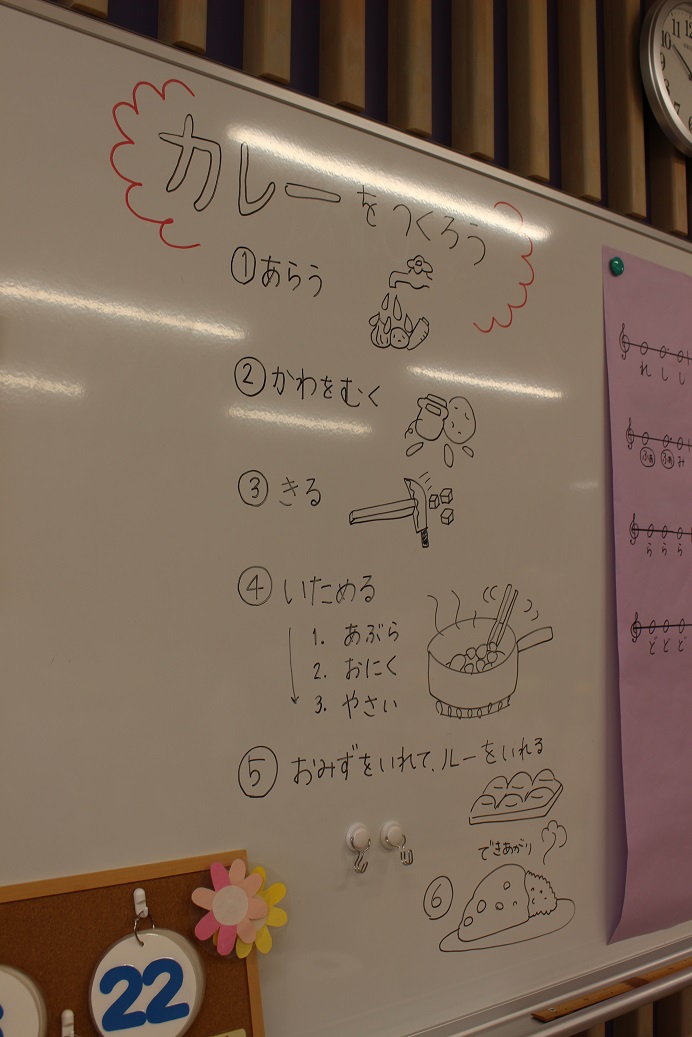 カレーをつくろう
① あらう
② かわをむく
③ きる
④ いためる
1. あぶら
2. おにく
3. やさい
⑤ おみずをいれて、ルーをいれる
できあがり
⑥
22
10 11 12
9
8
7 6
れ し し
み
ら ら ら
ど ど ど